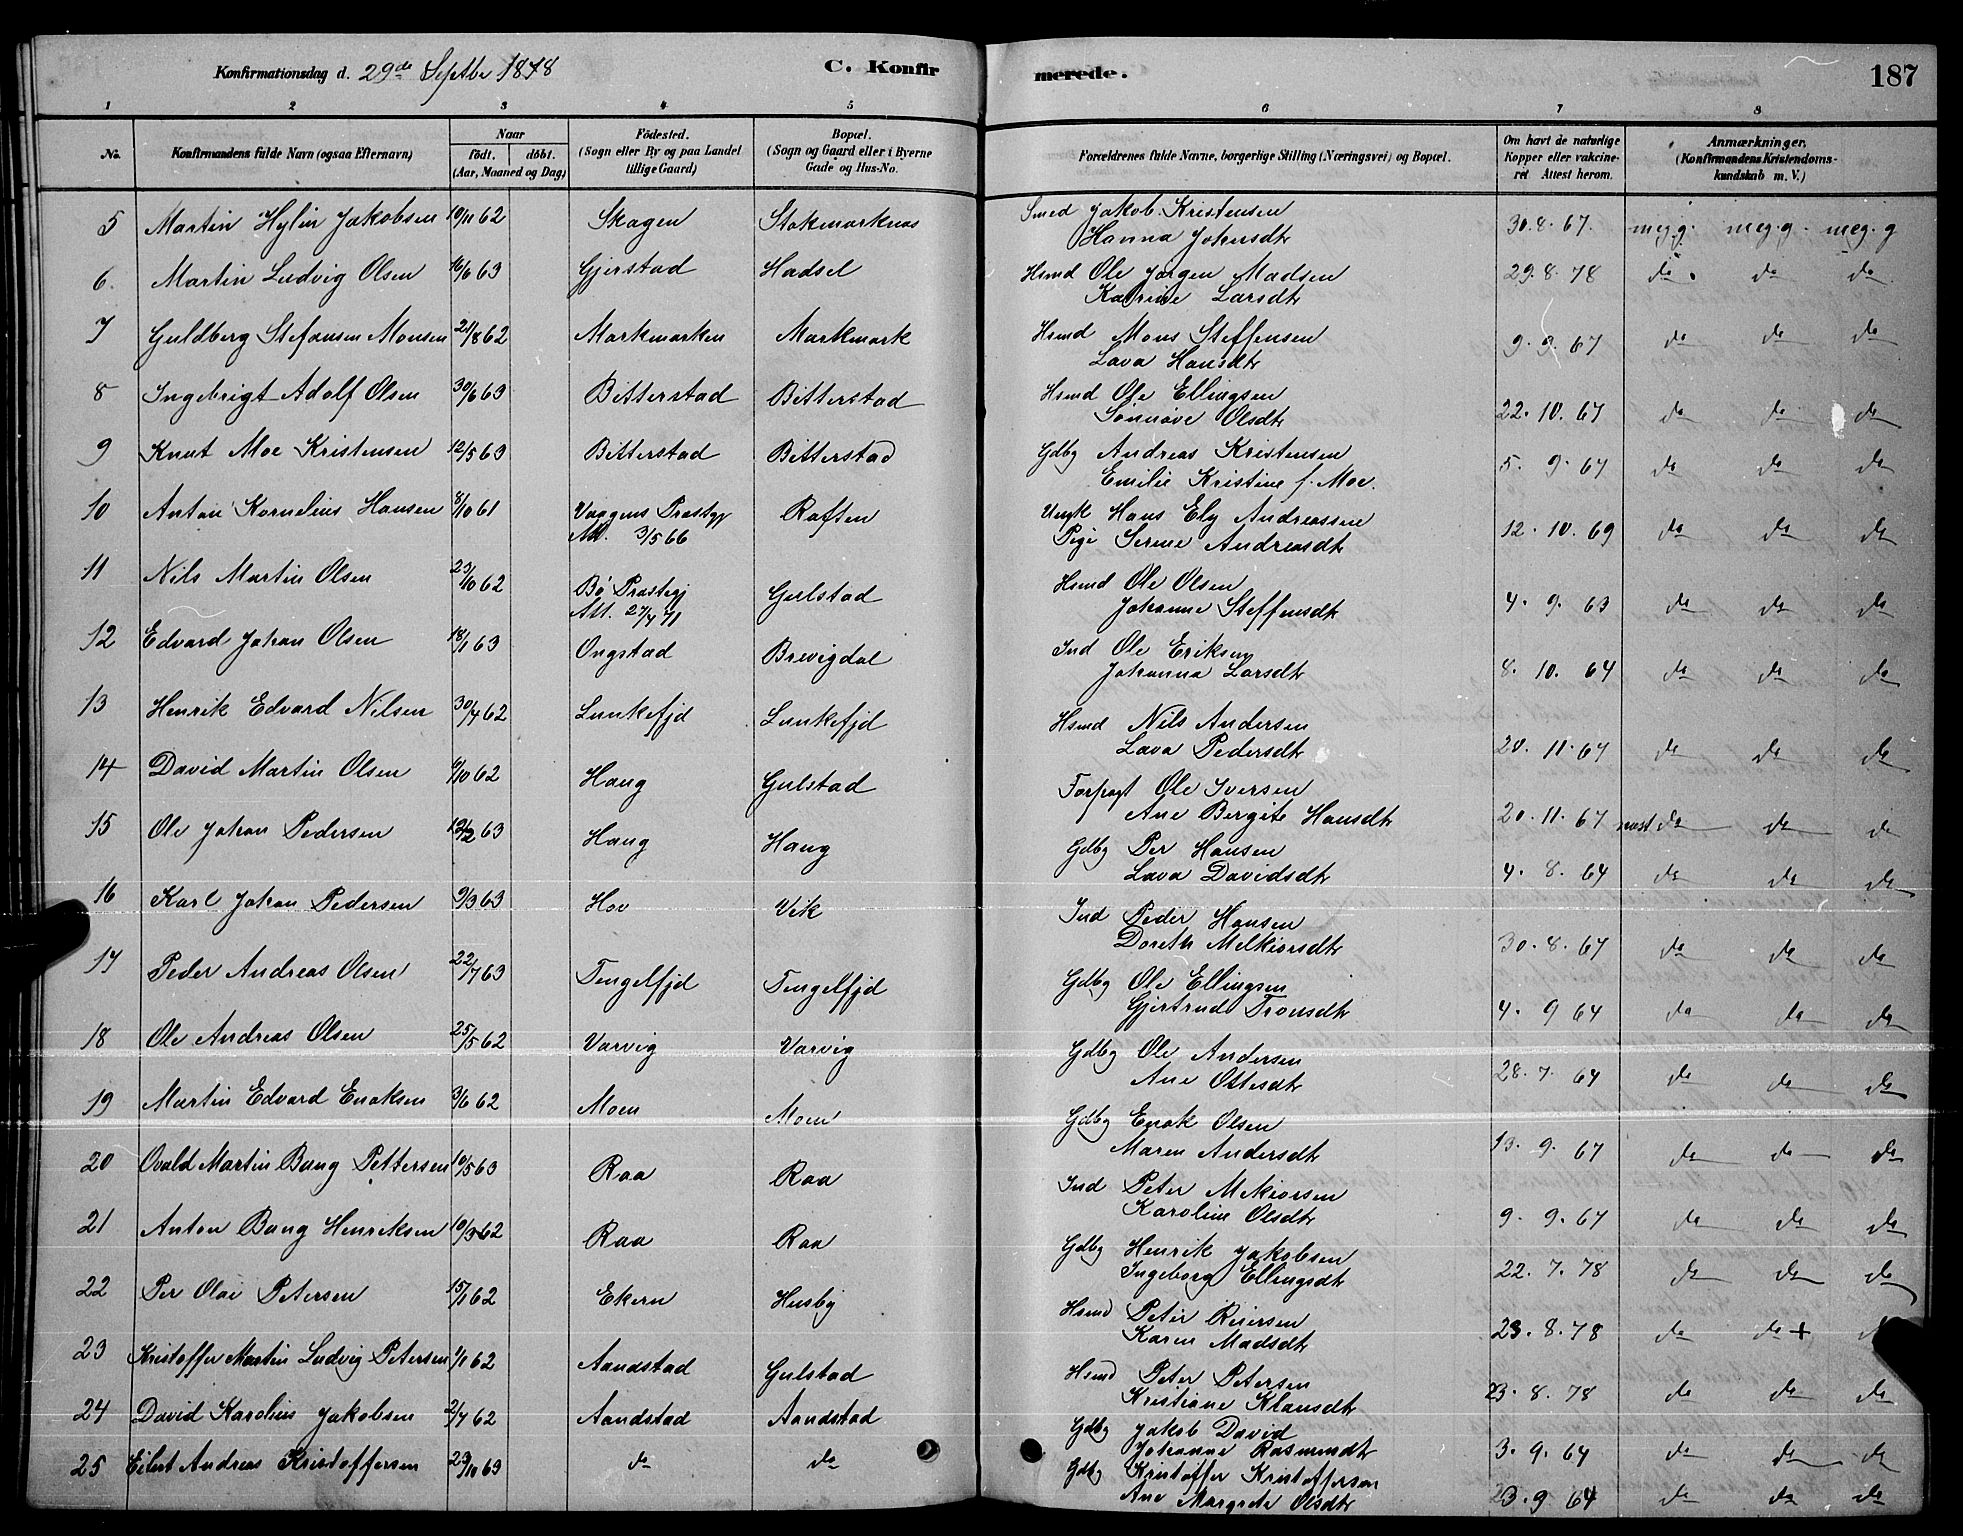 Konfirmationsdag d. 29de Septbr 1878
C. Konfirmerede.
187
1 2 3 4 5 6 7 8
No. Konfirmandens fulde Navn (ogsaa Efternavn) Naar födt. döbt. (Aar, Maaned og Dag) Födested. (Sogn eller By og paa Landet tillige Gaard) Bopæl. (Sogn og Gaard eller i Byerne Gade og Hus-No. Forældrenes fulde Navne, borgerlige Stilling (Næringsvei) og Bopæl. Om havt de naturlige Kopper eller vakcineret Attest herom. Anmærkninger. (Konfirmandens Kristendomskundskab m. V.)
5 Martin Hylin Jakobsen 10/11 62 Skagen Stokmarknæs Smed Jakob Kristensen 30.8.67. meg.g. meg.g. meg.g
Hanna Johnsdtr
6. Martin Ludvig Olsen 16/6 63 Gjerstad Hadsel Hsmd Ole Jørgen Madsen 29.8.78 do do do
Katrine Larsdtr
7 Guldberg Stefansen Monsen 21/8 62 Markmarken Markmark Hsmd Mons Steffensen 9.9.67 do do do
Lava Hansdtr
8 Ingebrigt Adolf Olsen 30/6 63 Bitterstad Bitterstad Hsmd Ole Ellingsen 22.10.67 do do do
Sønnøve Olsdtr
9 Knut Moe Kristensen 12/5 63 Bitterstad Bitterstad Gdbg Andreas Kristensen 5.9.67 do do do
Emilie Kristine f. Moe.
10 Anton Kornelius Hansen 8/10 61 Vaagens Præstgj Raften Ungk Hans Ely Andreassen 12.10.69 do do do
Att. 3/5 66 Pige Serine Andreasdtr
11 Nils Martin Olsen 23/10 62 Bø Præstegj Gulstad Hsmd Ole Olsen 4.9.63 do do do
Att. 27/4 71 Johanne Steffensdtr
12 Edvard Johan Olsen 18/1 63 Ongstad Brevigdal Ind Ole Eriksen 8.10.64 do do do
Johanna Larsdtr
13 Henrik Edvard Nilsen 30/7 62 Lunkefjd Lunkefjd Hsmd Nils Andersen 20.11.64 do do do
Lava Pedersdtr
14 David Martin Olsen 6/10 62 Haug Gulstad Forpagt Ole Iversen 20.11.67 næst do do do
Ane Bergite Hansdtr
15 Ole Johan Pedersen 12/2 63 Haug Haug Gdbg Per Hansen 4.8.64 do do do
Lava Davidsdtr
16 Karl Johan Pedersen 9/3 63 Hov Vik Ind Peder Hansen 30.8.67 do do do
Doreth Melkiorsdtr
17 Peder Andreas Olsen 22/7 63 Tengelfjd Tengelfjd Gdbg Ole Ellingsen 4.9 64 do do do
Gjertrud Tronsdtr
18 Ole Andreas Olsen 25/5 62 Varvig Varvig Gdbg Ole Andersen 28.7.64 do do do
Ane Ottesdtr
19 Martin Edvard Enoksen 3/6 62 Moen Moen Gdbg Enok Olsen 13.9.67 do do do
Maren Andersdtr
20 Ovald Martin Bang Pettersen 10/5 63 Raa Raa Ind Peter Mekiorsen 9.9.67 do do do
Karoline Olsdtr
21 Anton Bang Henriksen 10/3 62 Raa Raa Gdbg Henrik Jakobsen 22.7.78 do do do
Ingeborg Ellingsdtr
22 Per Olai Petersen 15/1 62 Ekern Husby Hsmd Peter Reiersen 23.8.78 do do +
Karen Madsdtr
23 Kristoffer Martin Ludvig Petersen 1/11 62 Aandstad Gulstad Hsmd Peter Petersen 23.8.78 do do do
Kristiane Klausdtr
24 David Karolius Jakobsen 2/7 62 Aandstad Aandstad Gdbg Jakob David 3.9.64 do do do
Johanne Rasmusdtr
25 Eilert Andreas Kristoffersen 23/10 63 do do Gdbg Kristoffer Kristoffersen 23.9 64 do do do
Ane Margrete Olsdtr